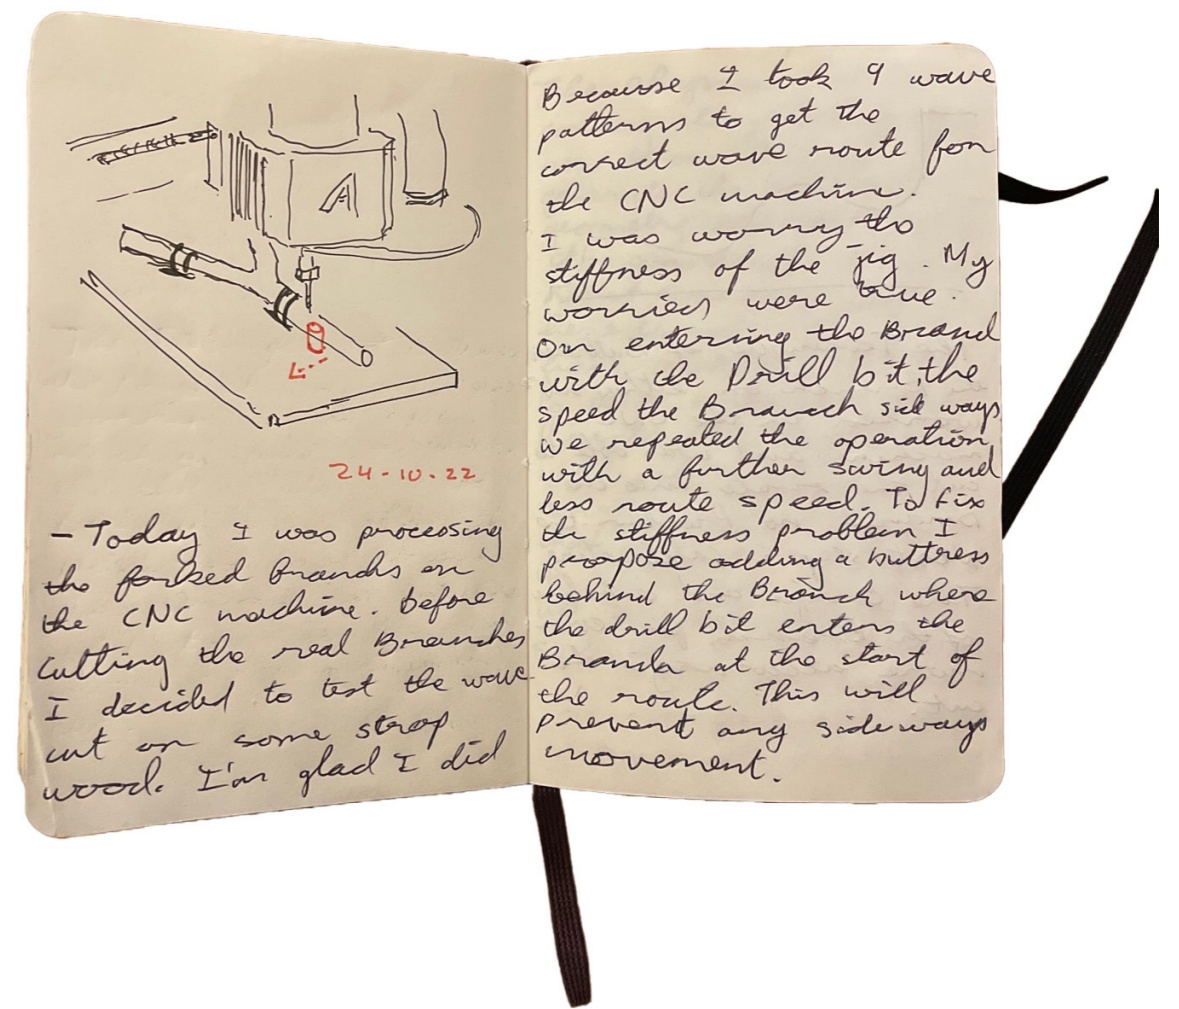 A
24-10-22
- Today I was processing
the forked Branchs on
the CNC machine. before
cutting the real Branches
I decided to test the wave
cut on some strap
wood. I'm glad I did
Because I took 9 wave
patterns to get the
correct wave route for
the CNC machine.
I was worry the
stiffness of the jig. My
worries were true.
On entering the Branch
with the Drill bit, the
speed the Branch side ways
we repeated the operation
with a further swing and
less route speed. To fix
the stiffness problem I
propose adding a buttress
behind the Branch where
the drill bit enters the
Branch at the start of
the route. This will
prevent any side ways
movement.